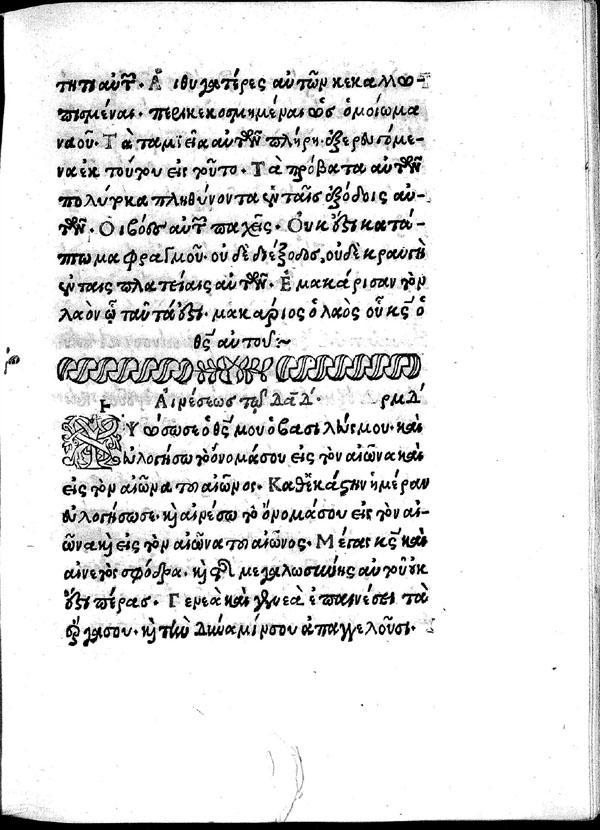 τητι αὐτῶν· Αἱ θυγατέρες αὐτῶν κεκαλλω-
πισμέναι περικεκοσμημέναι ὡς ὁμοίωμα
ναοῦ· Τὰ ταμιεῖα αὐτῶν πλήρη· ἐξερευγόμε-
να ἐκ τούτου εἰς τοῦτο· Τὰ πρόβατα αὐτῶν
πολύτοκα πληθύνοντα ἐν ταῖς ἐξόδοις αὐ-
τῶν· Οἱ βόες αὐτῶν παχεῖς· Οὐκ ἔστι κατά-
πτωμα φραγμοῦ· οὐδὲ διέξοδος, οὐδὲ κραυγὴ
ἐν ταῖς πλατείαις αὐτῶν· Ἐμακάρισαν τὸν
λαὸν ᾧ ταῦτά ἐστι· μακάριος ὁ λαὸς οὗ κς̄ ὁ
θς̄ αὐτοῦ:~
Αἰνέσεως τῷ Δᾱδ· ρμδ´
Ὑψώσω σε ὁ θς̄ μου ὁ βασιλεύς μου· καὶ
εὐλογήσω τὸ ὄνομά σου εἰς τὸν αἰῶνα καὶ
εἰς τὸν αἰῶνα τοῦ αἰῶνος· Καθ᾽ ἑκάστην ἡμέραν
εὐλογήσω σε· καὶ αἰνέσω τὸ ὄνομά σου εἰς τὸν αἰ-
ῶνα καὶ εἰς τὸν αἰῶνα τοῦ αἰῶνος· Μέγας κς̄ καὶ
αἰνετὸς σφόδρα· καὶ τῆς μεγαλωσύνης αὐτοῦ οὐκ
ἔστι πέρας· Γενεὰ καὶ γενεὰ ἐπαινέσει τὰ
ἔργα σου· καὶ τὴν δύναμίν σου ἀπαγγελοῦσι·